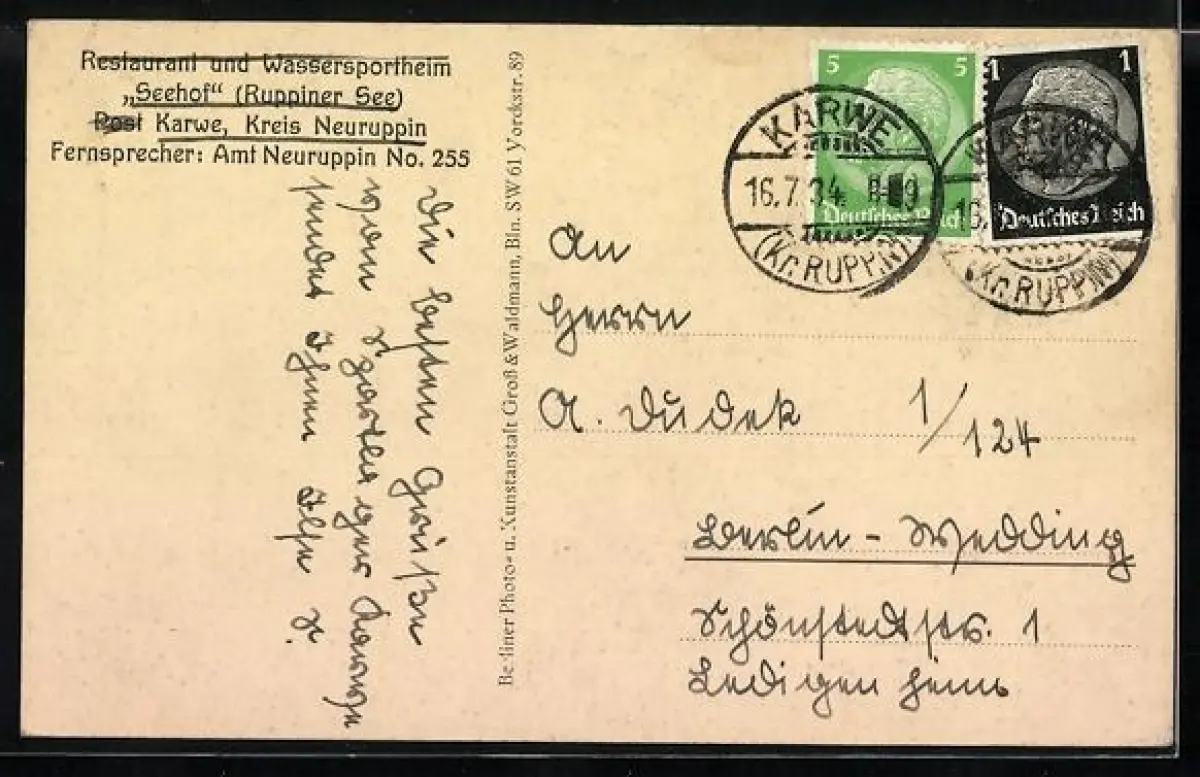 Restaurant und Wassersportheim
„Seehof“ (Ruppiner See)
Post Karwe, Kreis Neuruppin
Fernsprecher: Amt Neuruppin No. 255
Die besten Grüße
vom
sendet Ihnen Ilse
Berliner Photo- u. Kunstanstalt Groß & Waldmann, Bln. SW 61 Yorckstr. 89
5 5
Deutsches Reich
1 1
Deutsches Reich
KARWE
16.7.34. 8-9
(Kr. RUPPIN)
KARWE
16.
(Kr. RUPPIN)
An
Herrn
A. Dudek 1/124
Berlin - Wedding
Schönstedtstr. 1
Ledigenheim